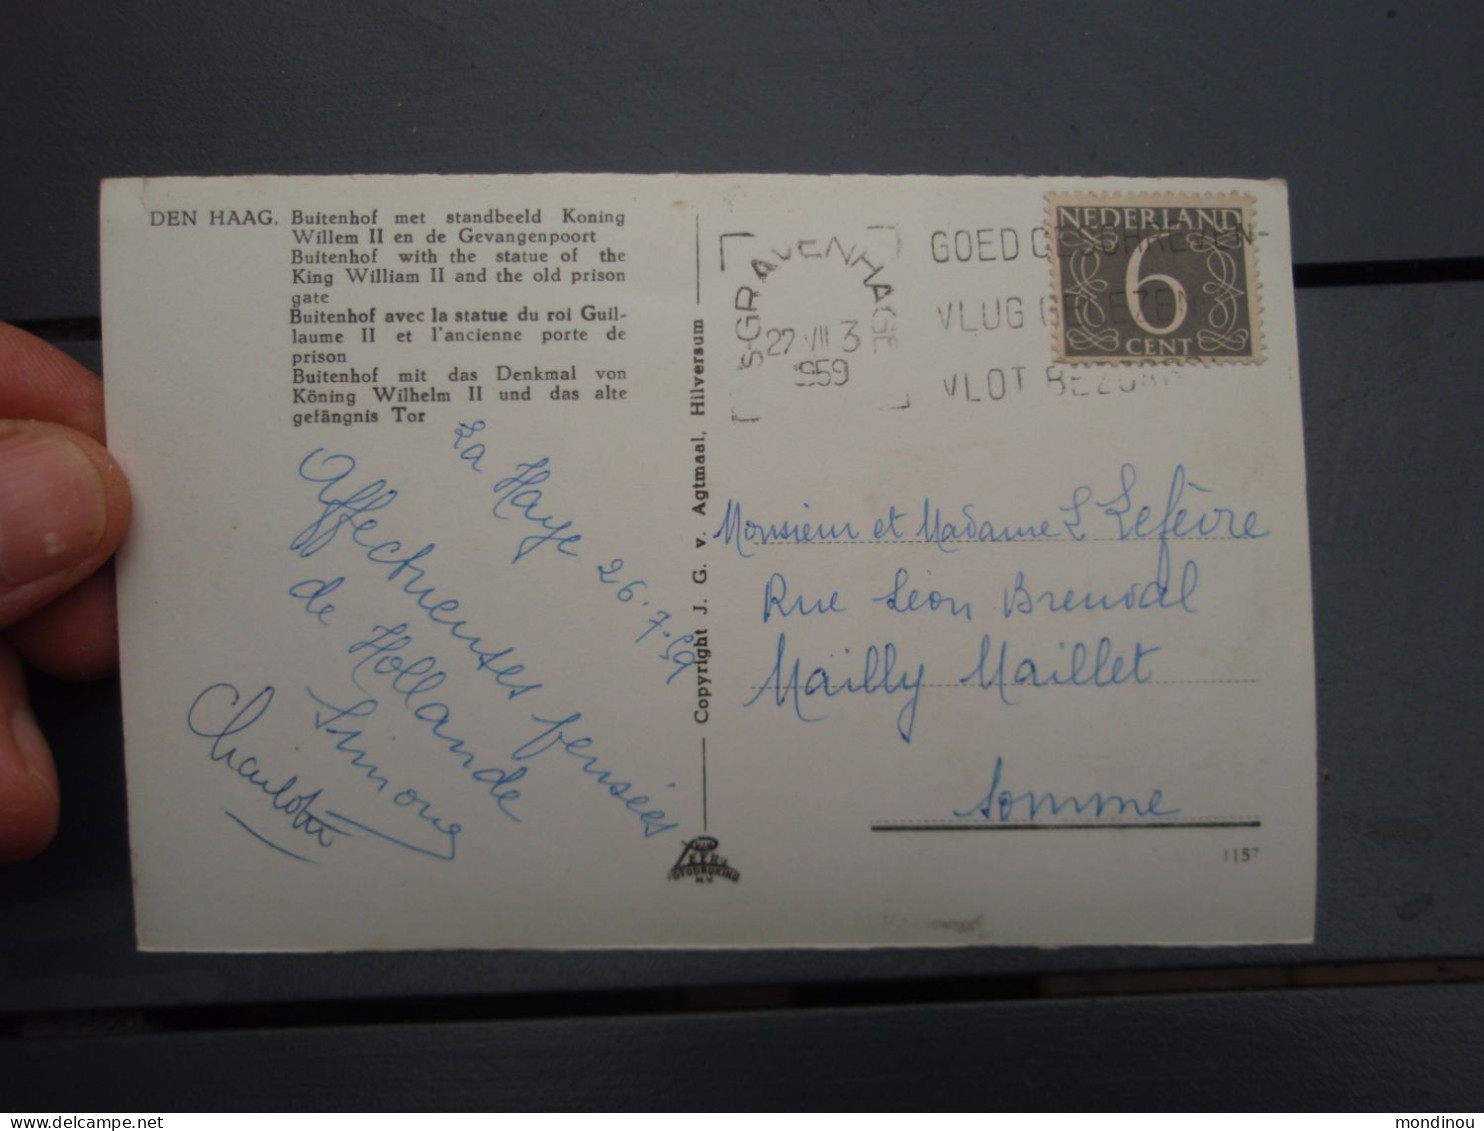 DEN HAAG, Buitenhof met standbeeld Koning
Willem II en de Gevangenpoort
Buitenhof with the statue of the
King William II and the old prison
gate
Buitenhof avec la statue du roi Guil-
laume II et l'ancienne porte de
prison
Buitenhof mit das Denkmal von
Köning Wilhelm II und das alte
gefängnis Tor
La Haye 26.7.59
Affectueuses pensées
de Hollande
Simone
Copyright J. G. v. Agtmaal, Hilversum
'S-GRAVENHAGE
27 VII 3
1959
GOED GESCHREVEN-
VLUG GELEZEN
VLOT BEZORGD
NEDERLAND
6
CENT
Monsieur et Madame L Lefèvre
Rue Léon Brenval
Mailly Maillet
Somme
1157
mondinou